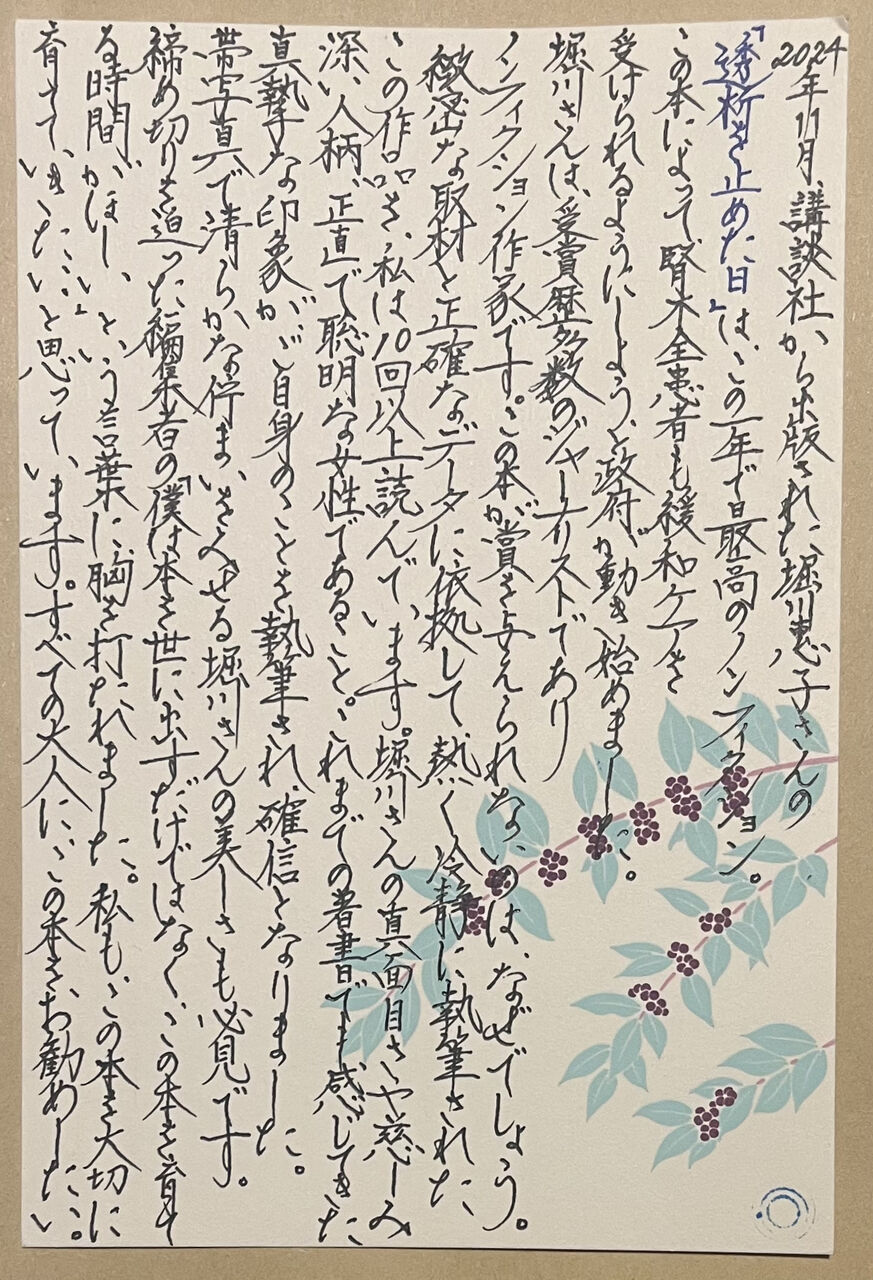 2024年11月、講談社から出版された堀川惠子さんの
『透析を止めた日』は、この一年で最高のノンフィクション。
この本によって腎不全患者も緩和ケアを
受けられるようにしようと政府が動き始めました。
堀川さんは、受賞歴多数のジャーナリストであり
ノンフィクション作家です。この本が賞を与えられないのは、なぜでしょう。
緻密な取材と正確なデータに依拠して熱く冷静に執筆された
この作品を、私は10回以上読んでいます。堀川さんの真面目さや慈しみ
深い人柄、正直で聡明な女性であること。これまでの著書でも感じてきた
真摯な印象が、ご自身のことを執筆され、確信となりました。
帯写真で清らかな佇まいを見せる堀川さんの美しさも必見です。
締め切りを迫った編集者の「僕は本を世に出すだけではなく、この本を育て
る時間がほしい」という言葉に胸を打たれました。私も、この本を大切に
育てていきたいと思っています。すべての大人に、この本をお勧めしたい。